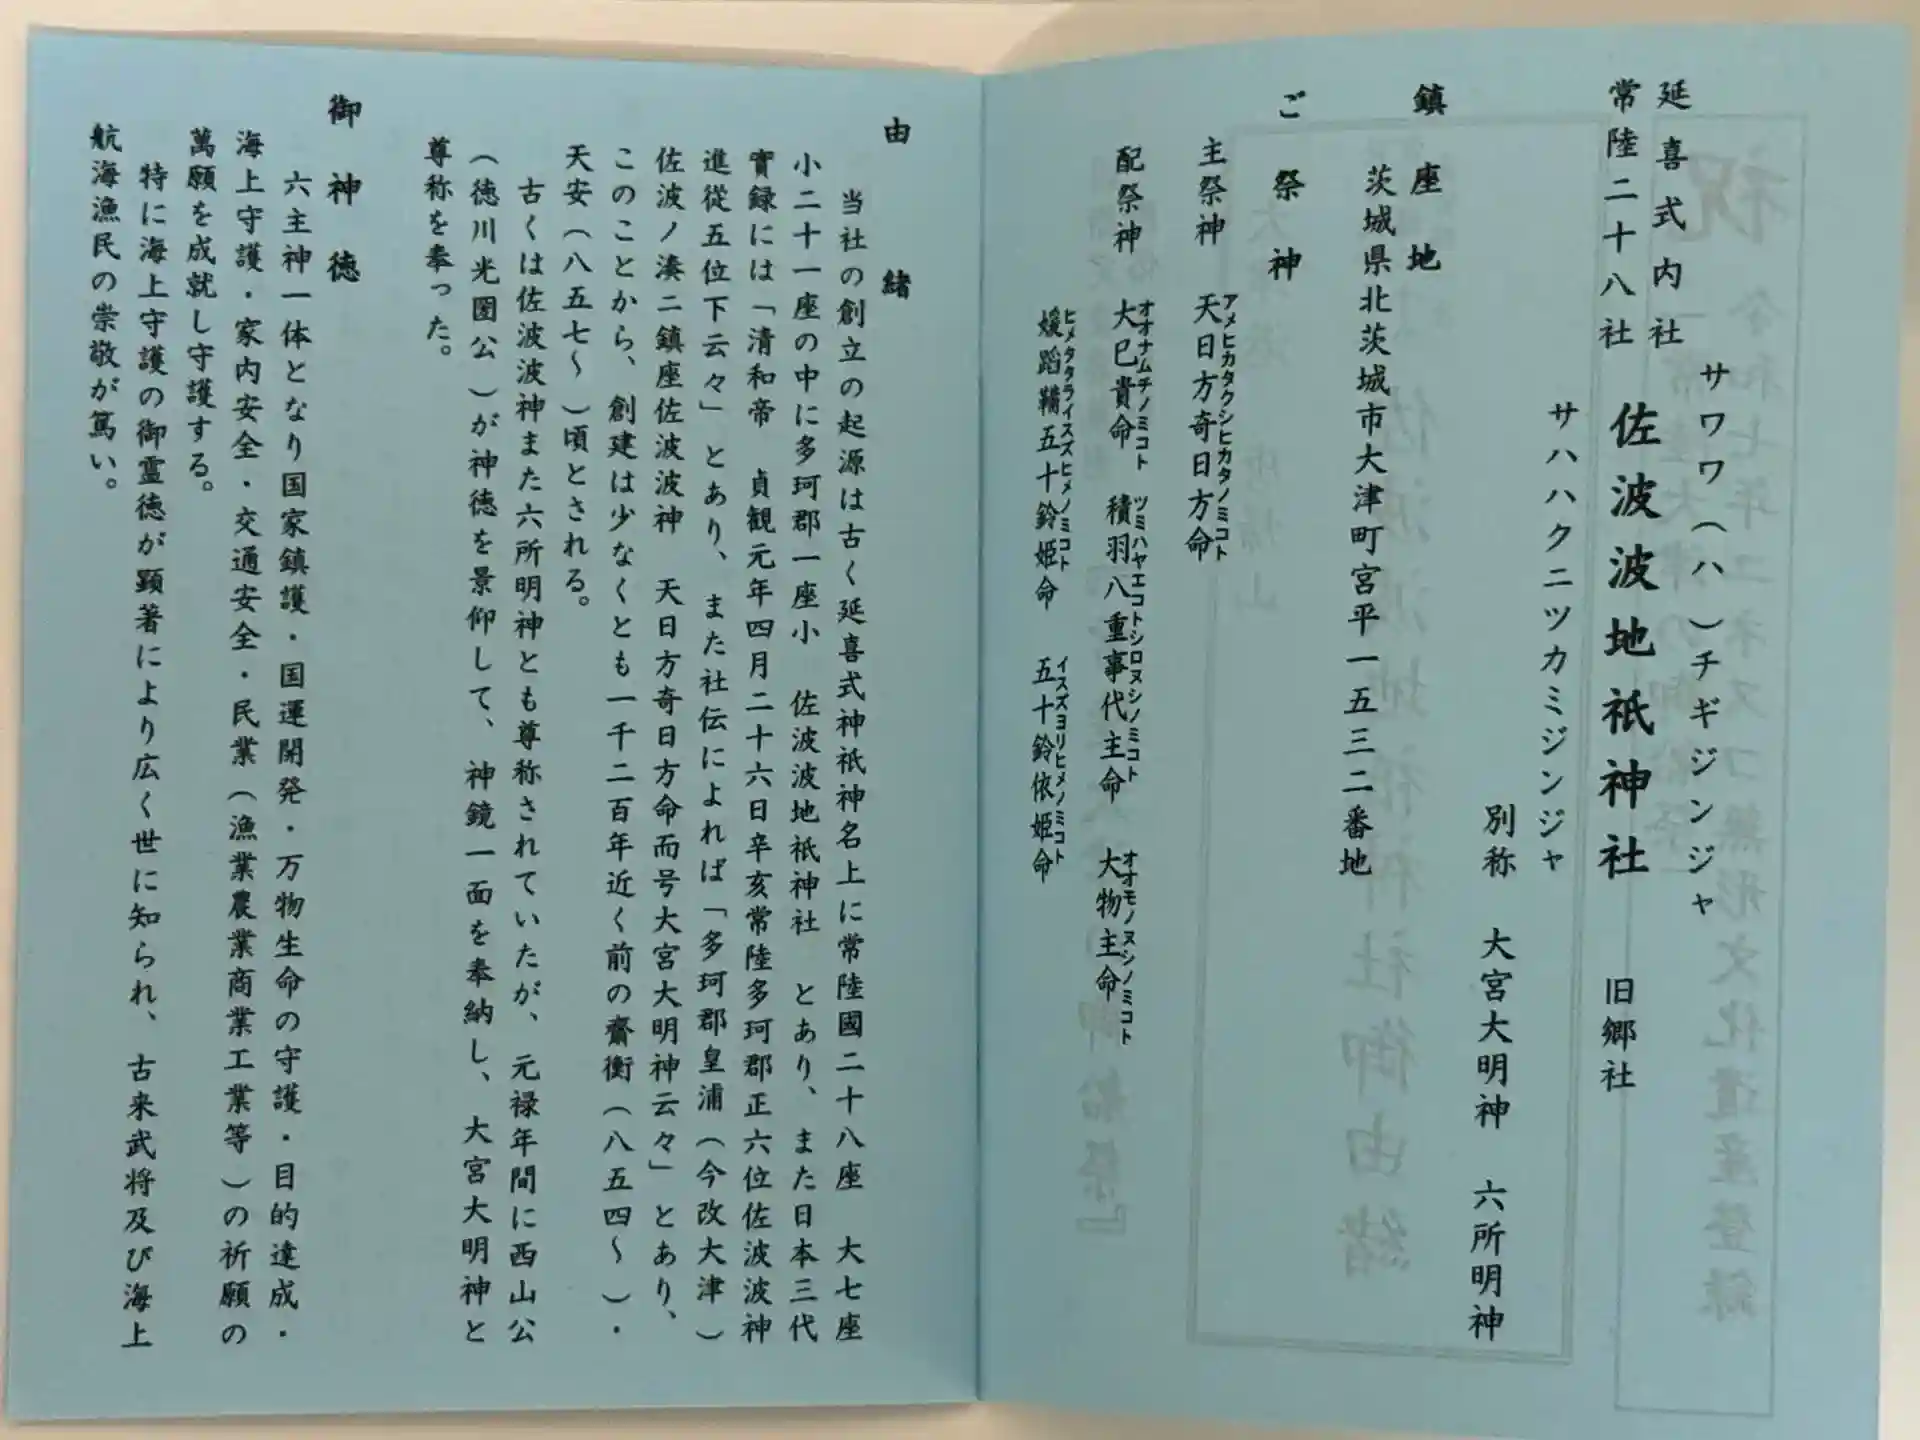 延喜式内社
常陸二十八社
サワワ(ハ)チギジンジャ
佐波波地祇神社　旧郷社
サハハクニツカミジンジャ
別称　大宮大明神　六所明神
鎮座地
茨城県北茨城市大津町宮平一五三二番地
ご祭神
主祭神　天日方奇日方命
アメヒカタクシヒカタノミコト
配祭神　大己貴命　積羽八重事代主命　大物主命
オオナムチノミコト　ツミハヤエコトシロヌシノミコト　オオモノヌシノミコト
媛蹈鞴五十鈴姫命　五十鈴依姫命
ヒメタタライスズヒメノミコト　イスズヨリヒメノミコト
由緒
当社の創立の起源は古く延喜式神祇神名上に常陸國二十八座　大七座
小二十一座の中に多珂郡一座小　佐波波地祇神社　とあり、また日本三代
實録には「清和帝　貞観元年四月二十六日辛亥常陸多珂郡正六位佐波波神
進従五位下云々」とあり、また社伝によれば「多珂郡皇浦(今改大津)
佐波ノ湊ニ鎮座佐波波神　天日方奇日方命而号大宮大明神云々」とあり、
このことから、創建は少なくとも一千二百年近く前の齋衡(八五四〜)・
天安(八五七〜)頃とされる。
古くは佐波波神また六所明神とも尊称されていたが、元禄年間に西山公
(徳川光圀公)が神徳を景仰して、神鏡一面を奉納し、大宮大明神と
尊称を奉った。
御神徳
六主神一体となり国家鎮護・国運開発・万物生命の守護・目的達成・
海上守護・家内安全・交通安全・民業(漁業農業商業工業等)の祈願の
萬願を成就し守護する。
特に海上守護の御霊徳が顕著により広く世に知られ、古来武将及び海上
航海漁民の崇敬が篤い。